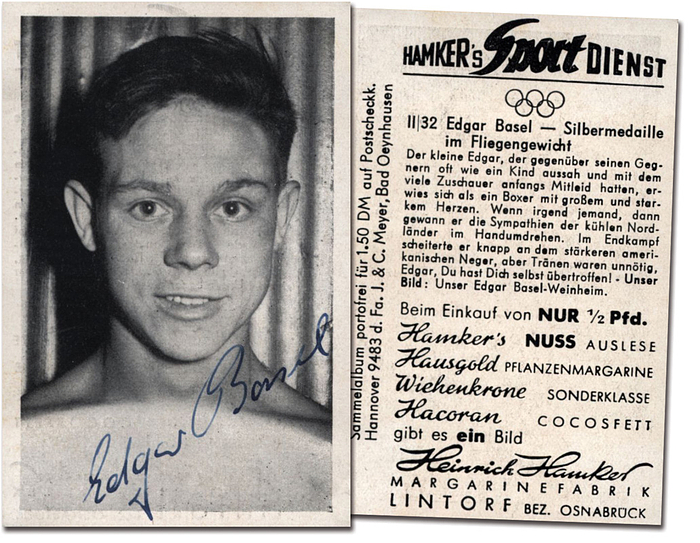 Edgar Basel
HAMKER's Sport DIENST
II|32 Edgar Basel — Silbermedaille
im Fliegengewicht
Der kleine Edgar, der gegenüber seinen Geg-
nern oft wie ein Kind aussah und mit dem
viele Zuschauer anfangs Mitleid hatten, er-
wies sich als ein Boxer mit großem und star-
kem Herzen. Wenn irgend jemand, dann
gewann er die Sympathien der kühlen Nord-
länder im Handumdrehen. Im Endkampf
scheiterte er knapp an dem stärkeren ameri-
kanischen Neger, aber Tränen waren unnötig,
Edgar, Du hast Dich selbst übertroffen! - Unser
Bild: Unser Edgar Basel-Weinheim.
Beim Einkauf von NUR ½ Pfd.
Hamker's NUSS AUSLESE
Hausgold PFLANZENMARGARINE
Wiehenkrone SONDERKLASSE
Hacoran COCOSFETT
gibt es ein Bild
Heinrich Hamker
MARGARINEFABRIK
LINTORF BEZ. OSNABRÜCK
Sammelalbum portofrei für 1.50 DM auf Postscheckk.
Hannover 9483 d. Fa. J. & C. Meyer, Bad Oeynhausen